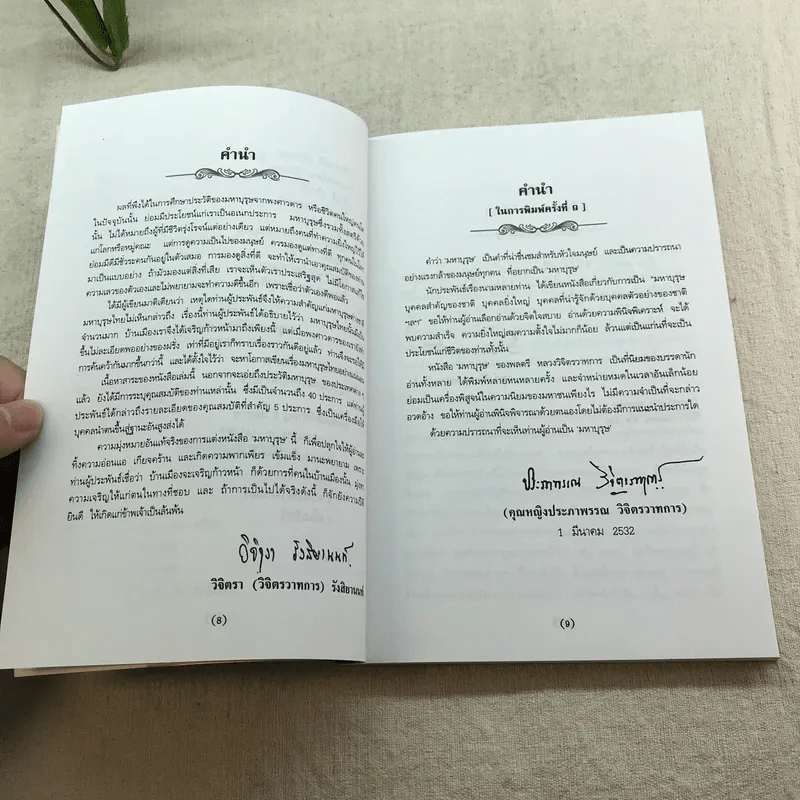 คำนำ
ผลที่พึงได้ในการศึกษาประวัติของมหาบุรุษจากพงศาวดาร หรือชีวิตคนใหญ่คนโต
ในปัจจุบันนั้น ย่อมมีประโยชน์แก่เราเป็นอเนกประการ มหาบุรุษซึ่งรวมทั้งสตรีด้วย
นั้น ไม่ได้หมายถึงผู้ที่มีชีวิตรุ่งโรจน์แต่อย่างเดียว แต่หมายถึงคนที่ทำความยิ่งใหญ่ไว้ให้
แก่โลกหรือหมู่คณะ แต่การดูความเป็นไปของมนุษย์ ควรมองดูแต่ทางที่ดี ทุกคนใน
ย่อมมีดีมีชั่วระคนกันอยู่ในตัวเสมอ การมองสิ่งที่ดี จะทำให้เรานำเอาคุณสมบัติของท่าน
มาเป็นแบบอย่าง ถ้ามัวมองแต่สิ่งที่เสีย เราจะเห็นตัวเราประเสริฐสุด ไม่มีโอกาส
ความเลวของตัวเองและไม่พยายามจะทำตัวให้ดีขึ้นอีก เพราะเชื่อว่าตัวเองดีพอแล้ว
ได้มีผู้เขียนมาติเตียนว่า เหตุใดท่านผู้ประพันธ์จึงให้ความสำคัญแก่มหาบุรุษต่างชาติ
มหาบุรุษไทยไม่เห็นกล่าวถึง เรื่องนี้ท่านผู้ประพันธ์ได้อธิบายไว้ว่า มหาบุรุษไทยนั้นมีเป็น
จำนวนมาก บ้านเมืองเราจึงได้เจริญก้าวหน้ามาถึงเพียงนี้ แต่เมื่อพงศาวดารของเรา
ขึ้นไม่ละเอียดพออย่างของฝรั่ง เท่าที่มีอยู่เราก็ทราบเรื่องราวกันดีอยู่แล้ว ท่านจึง
การค้นคว้ากันมากขึ้นกว่านี้ และได้ตั้งใจไว้ว่า จะหาโอกาสเขียนเรื่องมหาบุรุษไทยอย่าง
เนื้อหาสาระของหนังสือเล่มนี้ นอกจากจะเอ่ยถึงประวัติมหาบุรุษ ของประเทศต่าง ๆ
แล้ว ยังได้มีการระบุคุณสมบัติของท่านเหล่านั้น ซึ่งมีเป็นจำนวนถึง 40 ประการ แต่ท่านผู้
ประพันธ์ได้กล่าวถึงรายละเอียดของคุณสมบัติที่สำคัญ 5 ประการ ซึ่งเป็นเครื่องมือให้
บุคคลนำตนขึ้นสู่ฐานะอันสูงส่งได้
ความมุ่งหมายอันแท้จริงของการแต่งหนังสือ 'มหาบุรุษ' นี้ ก็เพื่อปลุกใจให้ผู้อ่าน
ทิ้งความอ่อนแอ เกียจคร้าน และเกิดความพากเพียร เข้มแข็ง มานะพยายาม เพราะ
ท่านผู้ประพันธ์เชื่อว่า บ้านเมืองจะเจริญก้าวหน้า ก็ด้วยการที่คนในบ้านเมืองนั้น มุ่งหา
ความเจริญให้แก่ตนในทางที่ชอบ และ ถ้าการเป็นไปได้จริงดังนี้ ก็จักยังความปีติ
ยินดี ให้เกิดแก่ข้าพเจ้าเป็นล้นพ้น
วิจิตรา รังสิยานนท์
วิจิตรา (วิจิตรวาทการ) รังสิยานนท์
(8)
คำนำ
[ ในการพิมพ์ครั้งที่ ๑ ]
คำว่า 'มหาบุรุษ' เป็นคำที่น่าชื่นชมสำหรับหัวใจมนุษย์ และเป็นความปรารถนา
อย่างแรงกล้าของมนุษย์ทุกคน ที่อยากเป็น 'มหาบุรุษ'
นักประพันธ์เรืองนามหลายท่าน ได้เขียนหนังสือเกี่ยวกับการเป็น "มหาบุรุษ
บุคคลสำคัญของชาติ บุคคลยิ่งใหญ่ บุคคลที่น่ารู้จักด้วยบุคคลตัวอย่างของชาติ
"ฯลฯ" ขอให้ท่านผู้อ่านเลือกอ่านด้วยจิตใจสบาย อ่านด้วยความพินิจพิเคราะห์ จะได้
พบความสำเร็จ ความยิ่งใหญ่สมความตั้งใจไม่มากก็น้อย ล้วนแต่เป็นแก่นที่จะเป็น
ประโยชน์แก่ชีวิตของท่านทั้งนั้น
หนังสือ 'มหาบุรุษ' ของพลตรี หลวงวิจิตรวาทการ เป็นที่นิยมของบรรดานัก
อ่านทั้งหลาย ได้พิมพ์หลายหนหลายครั้ง และจำหน่ายหมดในเวลาอันเล็กน้อย
ย่อมเป็นเครื่องพิสูจน์ในความนิยมของมหาชนเพียงไร ไม่มีความจำเป็นที่จะกล่าว
อวดอ้าง ขอให้ท่านผู้อ่านพินิจพิจารณาด้วยตนเองโดยไม่ต้องมีการแนะนำประการใด
ด้วยความปรารถนาที่จะเห็นท่านผู้อ่านเป็น 'มหาบุรุษ'
ประภาพรรณ วิจิตรวาทการ
(คุณหญิงประภาพรรณ วิจิตรวาทการ)
1 มีนาคม 2532
(9)